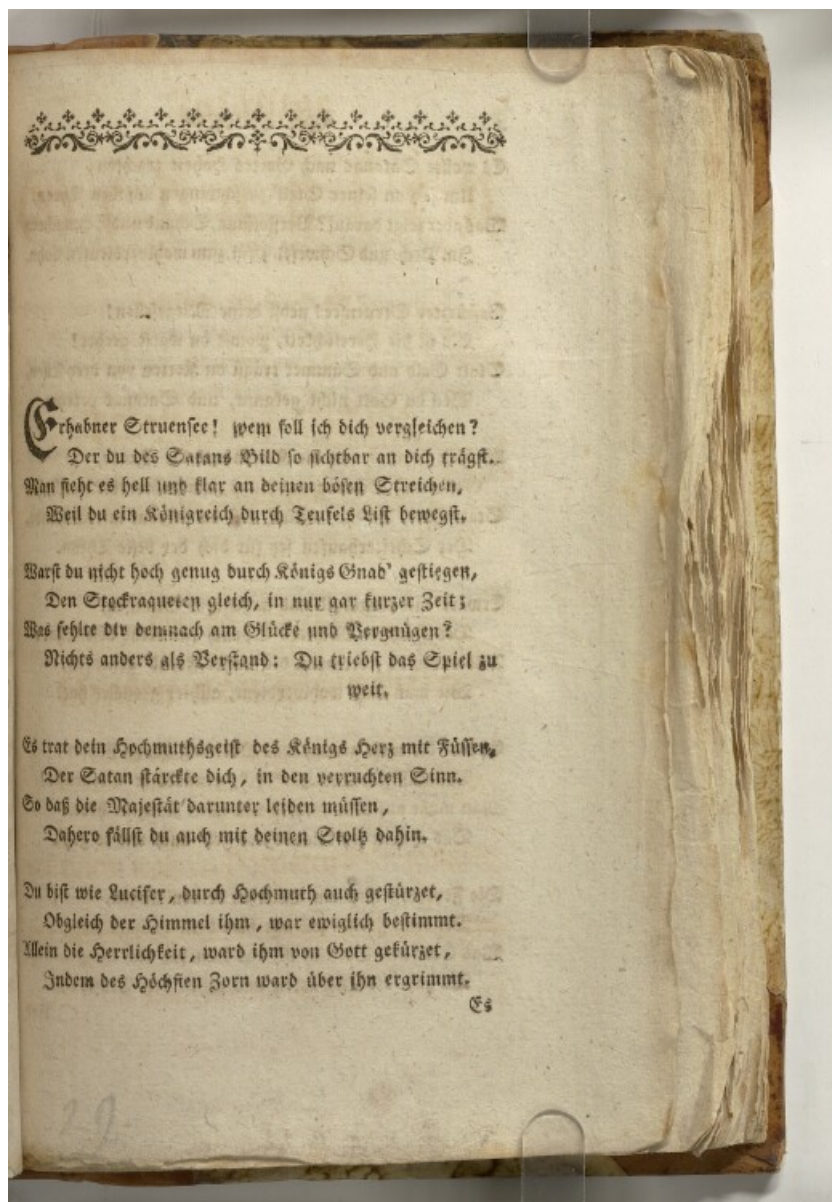 Erhabner Struensee! wem soll ich dich vergleichen?
Der du des Satans Bild so sichtbar an dich trägst.
Man sieht es hell und klar an deinen bösen Streichen,
Weil du ein Königreich durch Teufels List bewegst.
Warst du nicht hoch genug durch Königs Gnad' gestiegen,
Den Stockraqueten gleich, in nur gar kurzer Zeit;
Was fehlte dir demnach am Glücke und Vergnügen?
Nichts anders als Verstand: Du triebst das Spiel zu
weit.
Es trat dein Hochmuthsgeist des Königs Herz mit Füssen,
Der Satan stärckte dich, in den verruchten Sinn.
So daß die Majestät darunter leiden müssen,
Dahero fällst du auch mit deinen Stoltz dahin.
Du bist wie Lucifer, durch Hochmuth auch gestürzet,
Obgleich der Himmel ihm, war ewiglich bestimmt.
Allein die Herrlichkeit, ward ihm von Gott gekürzet,
Indem des Höchsten Zorn ward über ihn ergrimmt.
Es